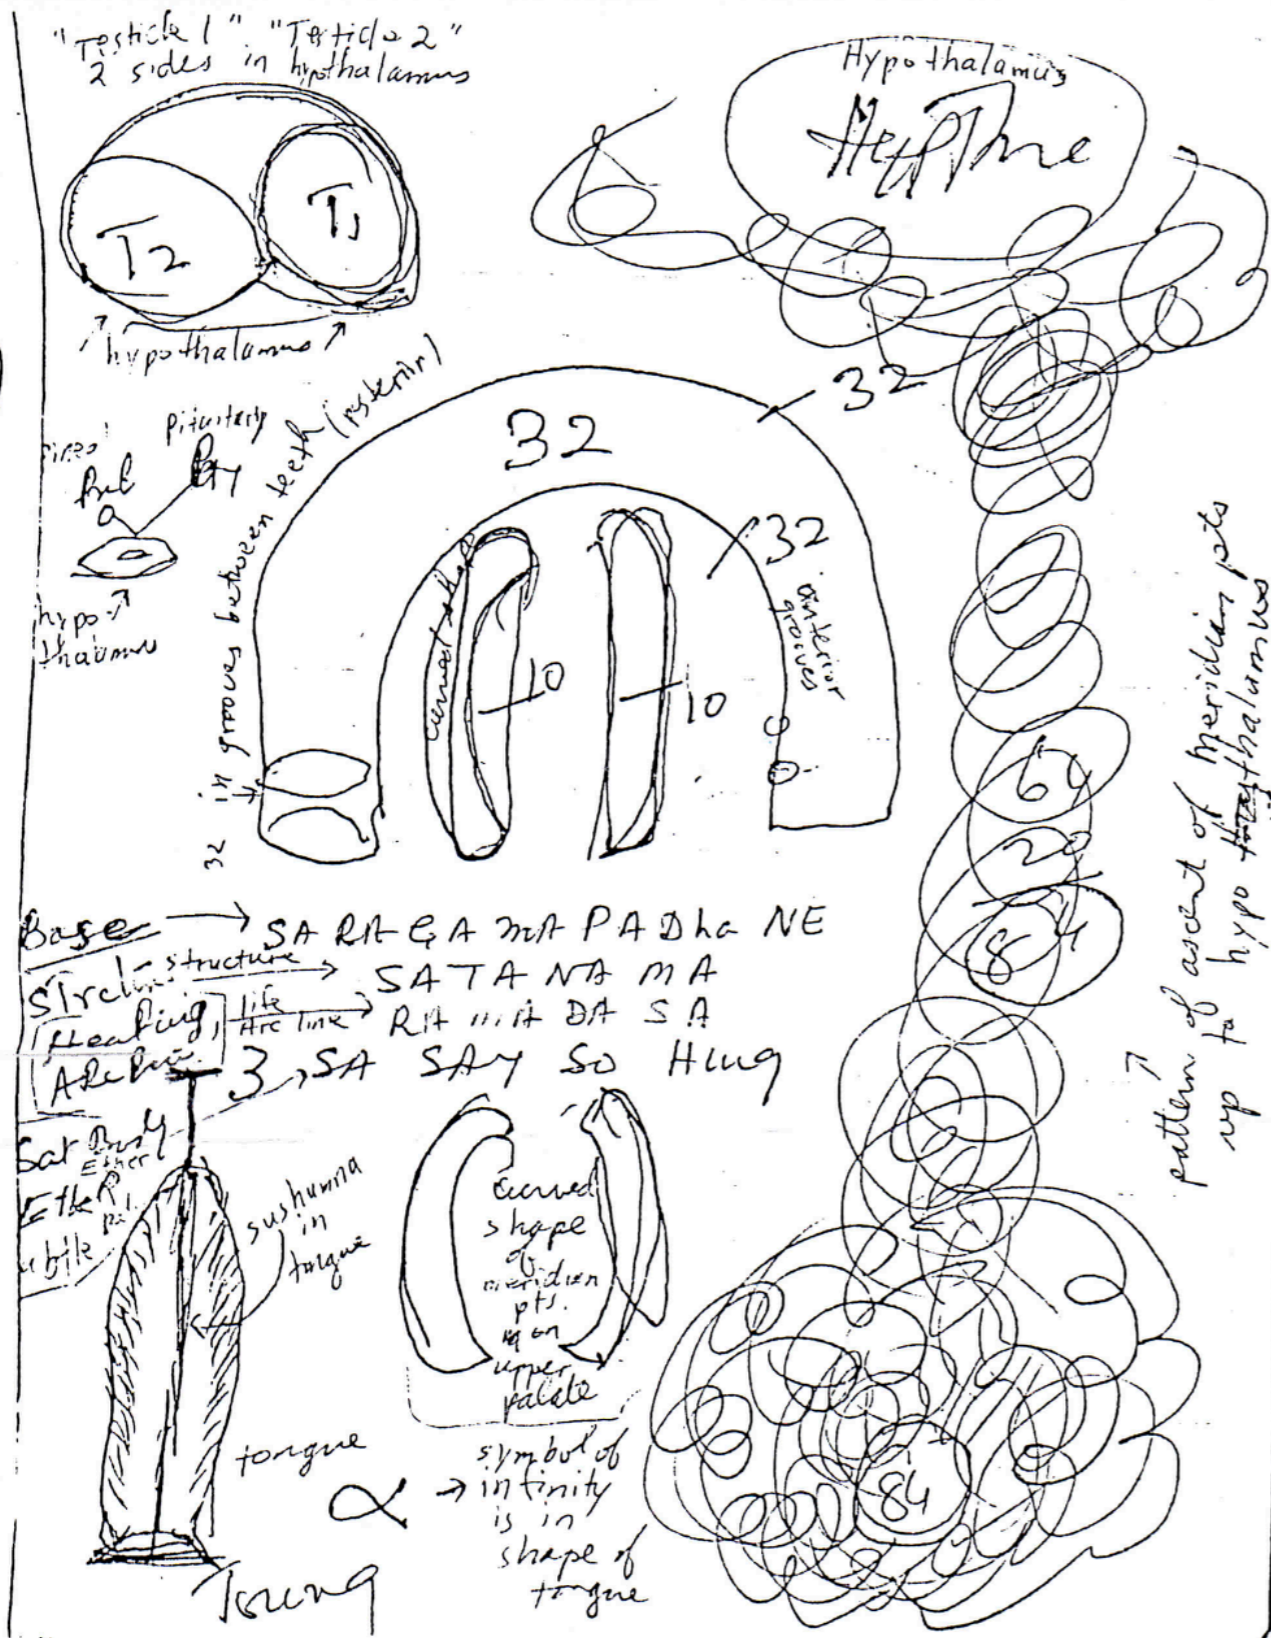 "Testicle 1" "Testicle 2"
2 sides in hypothalamus
T2
T1
hypothalamus
Hypothalamus
Pituitary
hypo
thalamus
32 in grooves between teeth (posterior)
32
32
32
anterior
grooves
curved shape
10
10
64
20
84
pattern of ascent of meridian pts
up to hypothalamus
Base → SA RA GA MA PA Dha NE
structure → SA TA NA MA
Healing, life → RA MA DA SA
Arc line
3 → SA SAY SO Hung
Sat Body
Ether
sushumna
in
tongue
curved
shape
of
meridian
pts.
on
upper
palate
tongue
∝ → symbol of
infinity
is in
shape of
tongue
Toung
84